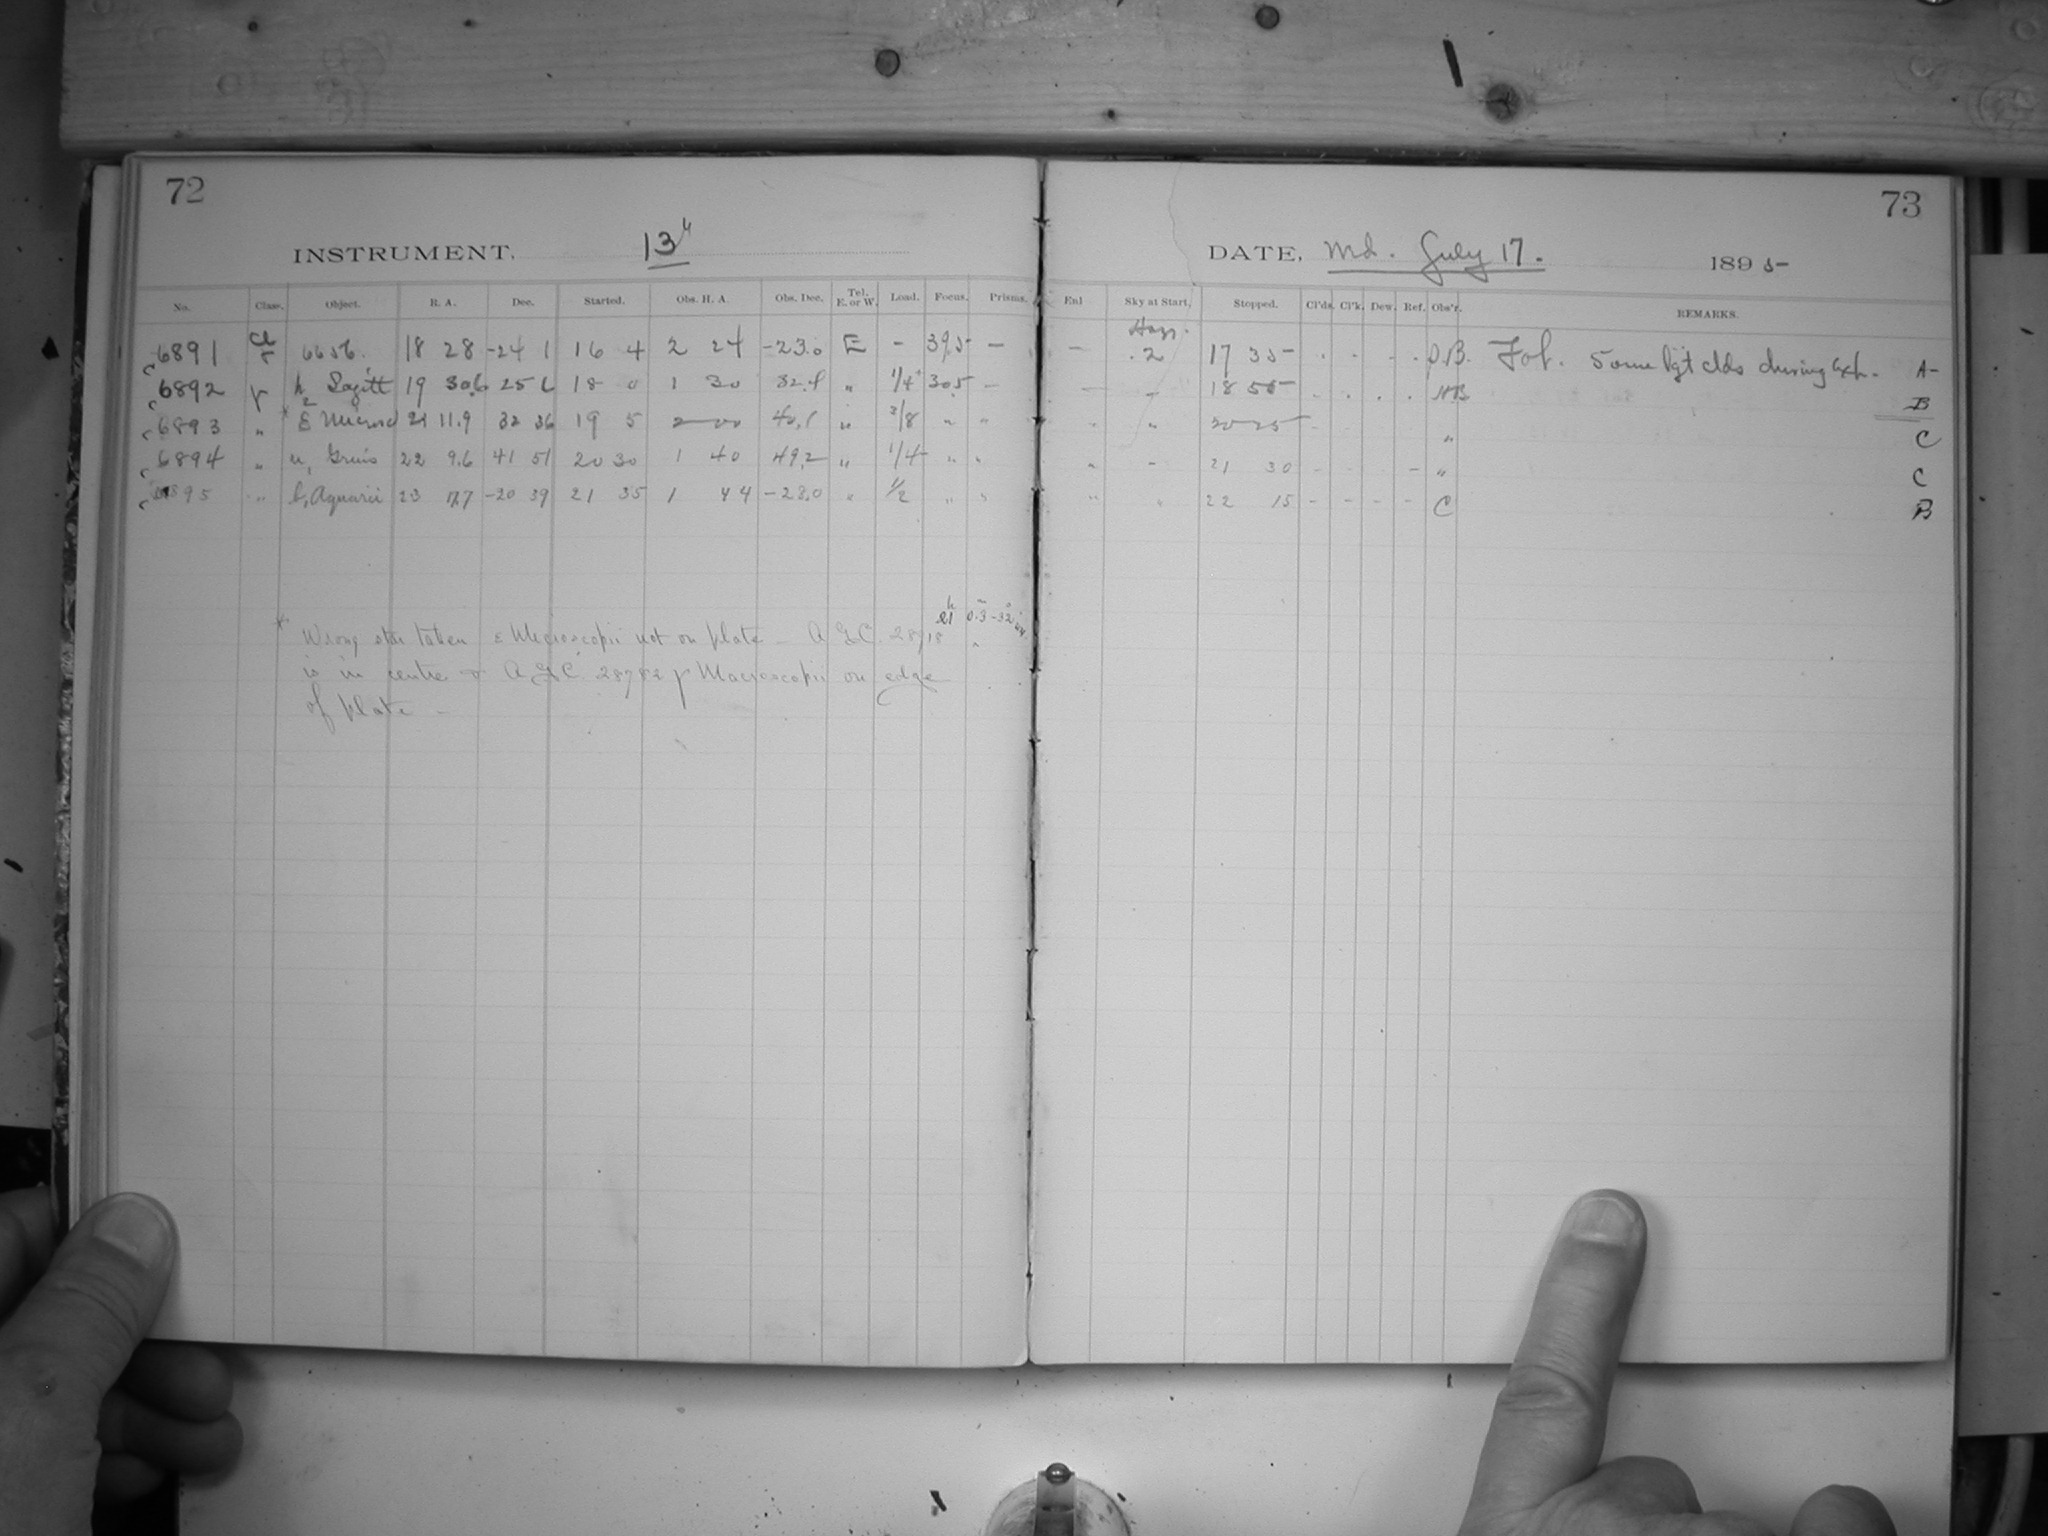 72
INSTRUMENT. 13"
No. Class. Object. R. A. Dec. Started. Obs. H. A. Obs. Dec. Tel. E. or W. Load. Focus. Prisms.
6891 Cl 6656. 18 28 -24 1 16 4 2 24 -23.0 E - 39.5 -
6892 h2 Sagitt 19 30.6 25 6 18 0 1 30 32.9 " 1/4+ 30.5 -
6893 " * ε Microsc 21 11.9 32 36 19 5 2 00 40.1 " 3/8 " "
6894 " Gruis 22 9.6 41 51 20 30 1 40 49.2 " 1/4 " "
6895 " b, Aquarii 23 17.7 -20 39 21 35 1 44 -28.0 " 1/2 " "
21h 0.3 -32
* Wrong star taken ε Microscopii not on plate - A G.C. 28718
is in centre + A.G.C. 28782 γ Macroscopii on edge
of plate -
73
DATE, Md. July 17. 1895
Enl Sky at Start, Stopped. Cl'ds. Cl'k. Dew. Ref. Obs'r. REMARKS.
Hazy.
- .2 17 35 . . - . D.B. Some lgt clds during Exp. A-
- - 18 55 . . . . B
" " 20 25 - - " C
" - 21 30 - - - " C
" " 22 15 - - - - C B